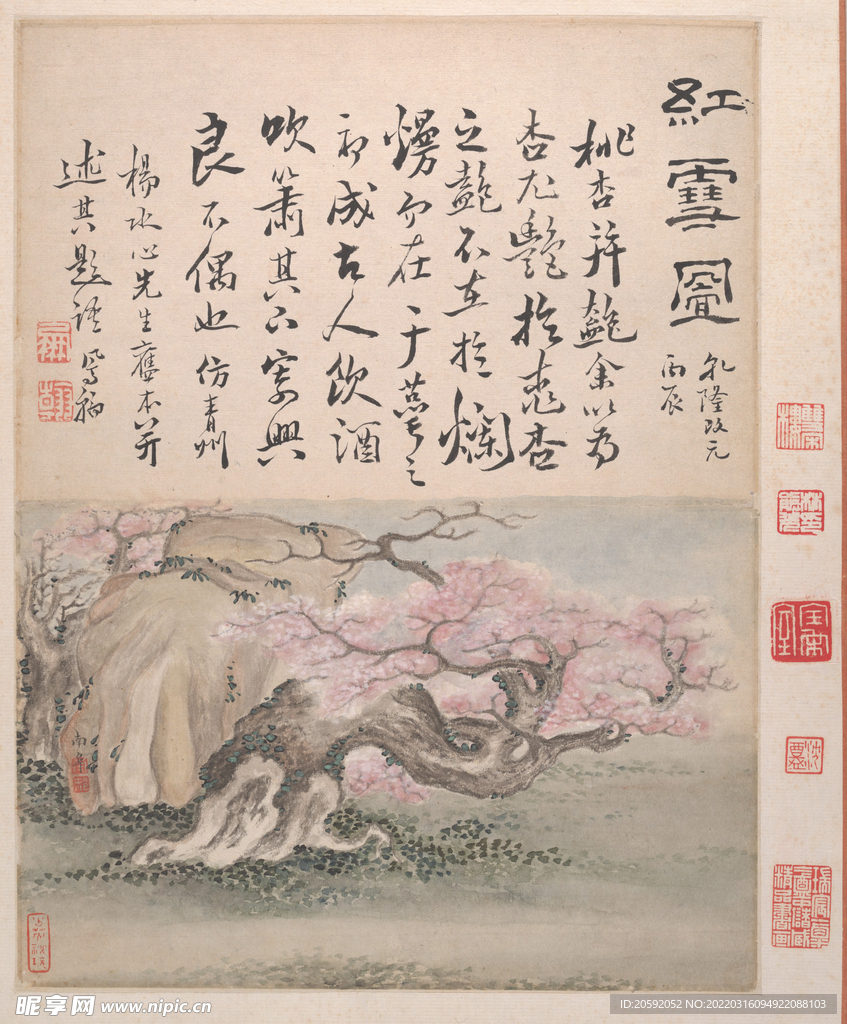 紅雪圖
乾隆改元
丙辰
桃杏并艷余以為
杏尤艷於桃杏
之艷不在於爛
熳而在于萼之
初成古人飲酒
吹簫其下寄興
良不偶也仿青州
楊水心先生舊本并
述其題語 鳳翰
南阜
昵享网 www.nipic.cn
ID:20592052 NO:20220316094922088103